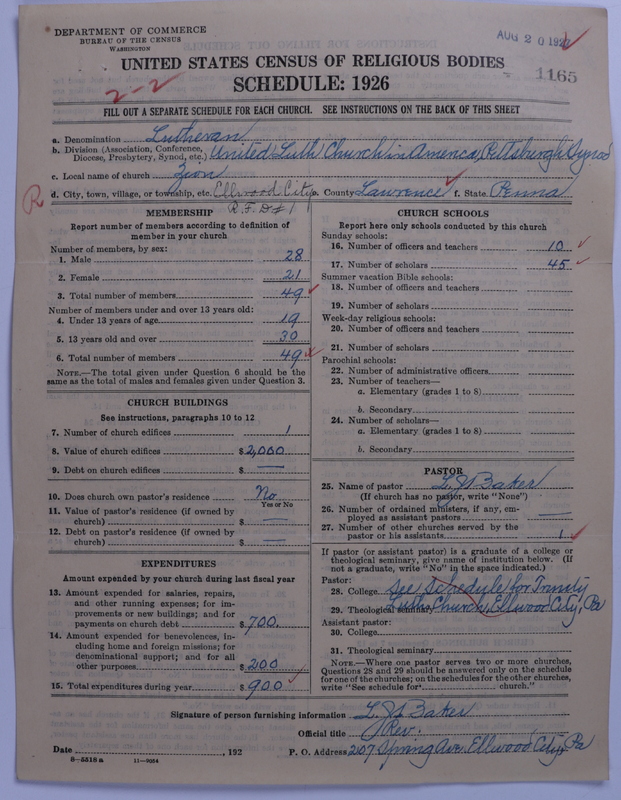 DEPARTMENT OF COMMERCE
BUREAU OF THE CENSUS
WASHINGTON
AUG 20 1927
1165
UNITED STATES CENSUS OF RELIGIOUS BODIES
SCHEDULE: 1926
2-2
FILL OUT A SEPARATE SCHEDULE FOR EACH CHURCH. SEE INSTRUCTIONS ON THE BACK OF THIS SHEET
a. Denomination Lutheran
b. Division (Association, Conference, Diocese, Presbytery, Synod, etc.) United Luth Church in America, Pittsburgh Synod
c. Local name of church Zion
R
d. City, town, village, or township, etc. Ellwood City e. County Lawrence f. State Penna
R.F.D#1
MEMBERSHIP
Report number of members according to definition of
member in your church
Number of members, by sex:
1. Male 28
2. Female 21
3. Total number of members 49
Number of members under and over 13 years old:
4. Under 13 years of age 19
5. 13 years old and over 30
6. Total number of members 49
NOTE.—The total given under Question 6 should be
same as the total of males and females given under Question 3.
CHURCH BUILDINGS
See instructions, paragraphs 10 to 12
7. Number of church edifices 1
8. Value of church edifices $2,000
9. Debt on church edifices $ —
10. Does church own pastor's residence No
Yes or No
11. Value of pastor's residence (if owned by
church) $ —
12. Debt on pastor's residence (if owned by
church) $ —
EXPENDITURES
Amount expended by your church during last fiscal year
13. Amount expended for salaries, repairs,
and other running expenses; for im-
provements or new buildings; and for
payments on church debt $700.
14. Amount expended for benevolences, in-
cluding home and foreign missions; for
denominational support; and for all
other purposes $200
15. Total expenditures during year $900
CHURCH SCHOOLS
Report here only schools conducted by this church
Sunday schools:
16. Number of officers and teachers 10
17. Number of scholars 45
Summer vacation Bible schools:
18. Number of officers and teachers
19. Number of scholars
Week-day religious schools:
20. Number of officers and teachers
21. Number of scholars
Parochial schools:
22. Number of administrative officers
23. Number of teachers—
a. Elementary (grades 1 to 8)
b. Secondary
24. Number of scholars—
a. Elementary (grades 1 to 8)
b. Secondary
PASTOR
25. Name of pastor L. J. Baker
(If church has no pastor, write "None")
26. Number of ordained ministers, if any, em-
ployed as assistant pastors —
27. Number of other churches served by the
pastor or his assistants 1
If pastor (or assistant pastor) is a graduate of a college or
theological seminary, give name of institution below. (If
not a graduate, write "No" in the space indicated.)
Pastor:
28. College See Schedule for Trinity
29. Theological seminary Luth. Church, Ellwood City, Pa
Assistant pastor:
30. College
31. Theological seminary
NOTE.—Where one pastor serves two or more churches,
Questions 28 and 29 should be answered only on the schedule
for one of the churches; on the schedules for the other churches,
write "See schedule for church."
Signature of person furnishing information L. J. Baker
Official title Rev.
Date , 192 P. O. Address 207 Spring Ave. Ellwood City, Pa
8-3318 a 11-9084